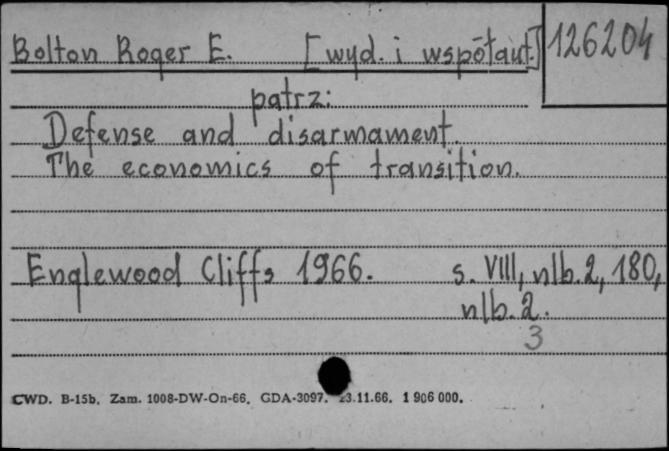 Bolton Roger E. [wyd. i współaut.] 126204
patrz:
Defense and disarmament.
The economics of transition.
Englewood Cliffs 1966. s. VIII, nlb. 2, 180,
nlb. 2.
3
CWD. B-15b. Zam. 1008-DW-On-66. GDA-3097. 23.11.66. 1 906 000.